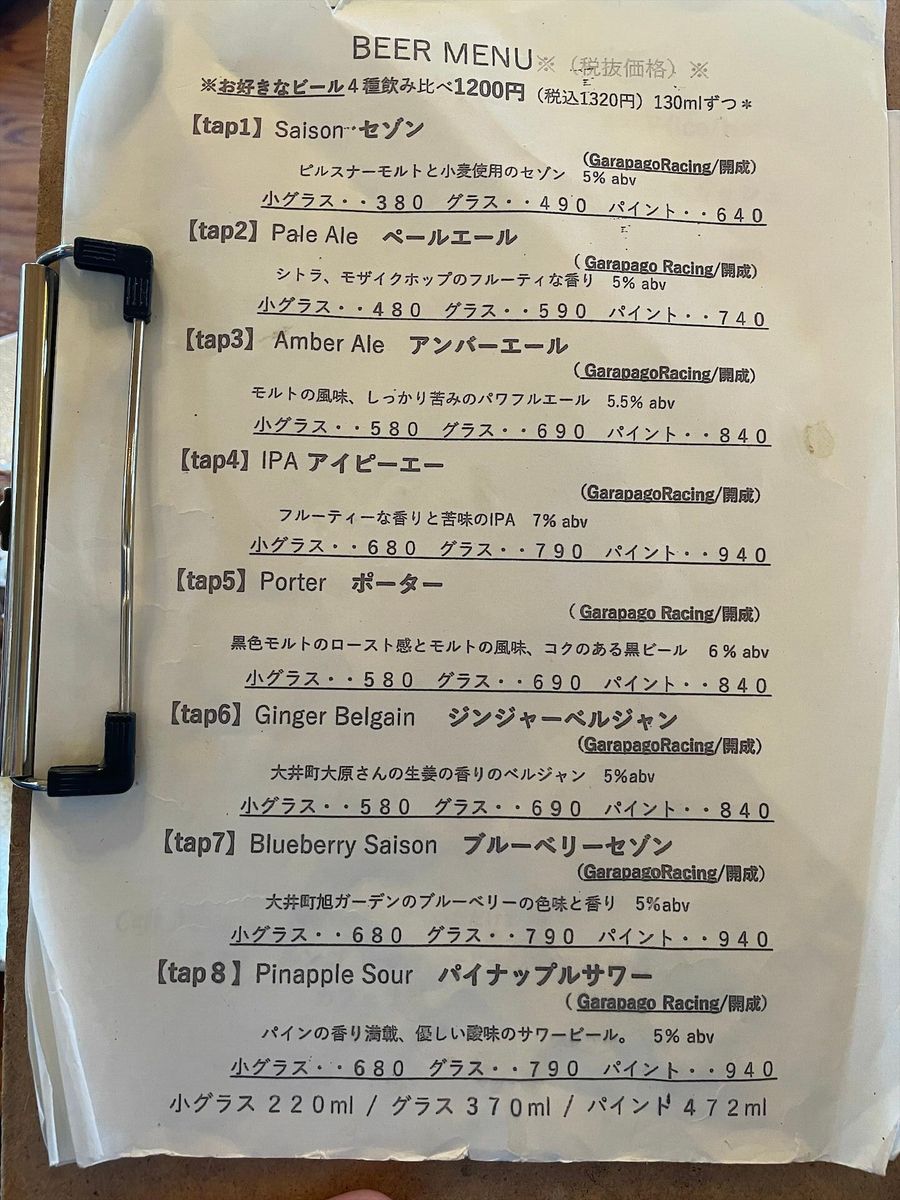 BEER MENU※（税抜価格）※
※お好きなビール４種飲み比べ1200円（税込1320円）130mlずつ＊
【tap1】Saison‥セゾン
（GarapagoRacing/開成）
ピルスナーモルトと小麦使用のセゾン　5% abv
小グラス・・３８０　グラス・・４９０　パイント・・６４０
【tap2】Pale Ale　ペールエール
（ Garapago Racing/開成）
シトラ、モザイクホップのフルーティな香り　5% abv
小グラス・・４８０　グラス・・５９０　パイント・・７４０
【tap3】Amber Ale　アンバーエール
（ GarapagoRacing/開成）
モルトの風味、しっかり苦みのパワフルエール　5.5% abv
小グラス・・５８０　グラス・・６９０　パイント・・８４０
【tap4】IPA アイピーエー
（GarapagoRacing/開成）
フルーティーな香りと苦味のIPA　7% abv
小グラス・・６８０　グラス・・７９０　パイント・・９４０
【tap5】Porter　ポーター
（ Garapago Racing/開成）
黒色モルトのロースト感とモルトの風味、コクのある黒ビール　６% abv
小グラス・・５８０　グラス・・６９０　パイント・・８４０
【tap6】Ginger Belgain　ジンジャーベルジャン
（GarapagoRacing/開成）
大井町大原さんの生姜の香りのベルジャン　5%abv
小グラス・・５８０　グラス・・６９０　パイント・・８４０
【tap7】Blueberry Saison　ブルーベリーセゾン
（GarapagoRacing/開成）
大井町旭ガーデンのブルーベリーの色味と香り　5%abv
小グラス・・６８０　グラス・・７９０　パイント・・９４０
【tap８】Pinapple Sour　パイナップルサワー
（ Garapago Racing/開成）
パインの香り満載、優しい酸味のサワービール。　5% abv
小グラス・・６８０　グラス・・７９０　パイント・・９４０
小グラス ２２０ml / グラス ３７０ml / パイント ４７２ml